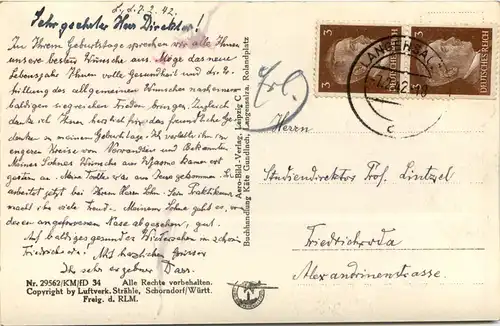 L., d. 7.2.42.
Sehr geehrter Herr Direktor!
In Ihrem Geburtstage sprechen wir alle Ihnen
unsere besten Wünsche aus. Möge das neue
Lebensjahr Ihnen volle Gesundheit und die Er-
füllung des allgemeinen Wunsches nach einem
baldigen siegreichen Frieden bringen. Zugleich
danke ich Ihnen herzlich für das freundliche Ge-
denken zu meinem Geburtstage. Ich verlebte ihn im
engeren Kreise von Verwandten und Bekannten.
Meines Sohnes Wünsche aus
gestern an. Meine war aus Jena gekommen.
arbeitet jetzt bei Ihrem Herrn Sohn. Sein Praktikum
macht ihr viel Freud. Meinem Sohne geht es, von
deren angefrorenen Nase abgesehen, gut.
Auf baldiges gesundes Wiedersehen im schönen
Friedrichroda. Mit herzlichen Grüssen
Ihr sehr ergebener
Nr. 29562/KM/fD 34 Alle Rechte vorbehalten.
Copyright by Luftverk. Strähle, Schorndorf/Württ.
Freig. d. RLM.
Aero-Bild-Verlag, Leipzig C 1
Buchhandlung Käte Gundlach, Langensalza, Rolandplatz
Erl.
3 DEUTSCHES REICH
3 DEUTSCHES REICH
LANGENSALZA
c
Herrn
Studiendirektor Prof. Lintzel
Friedrichroda
Alexandrinenstrasse.